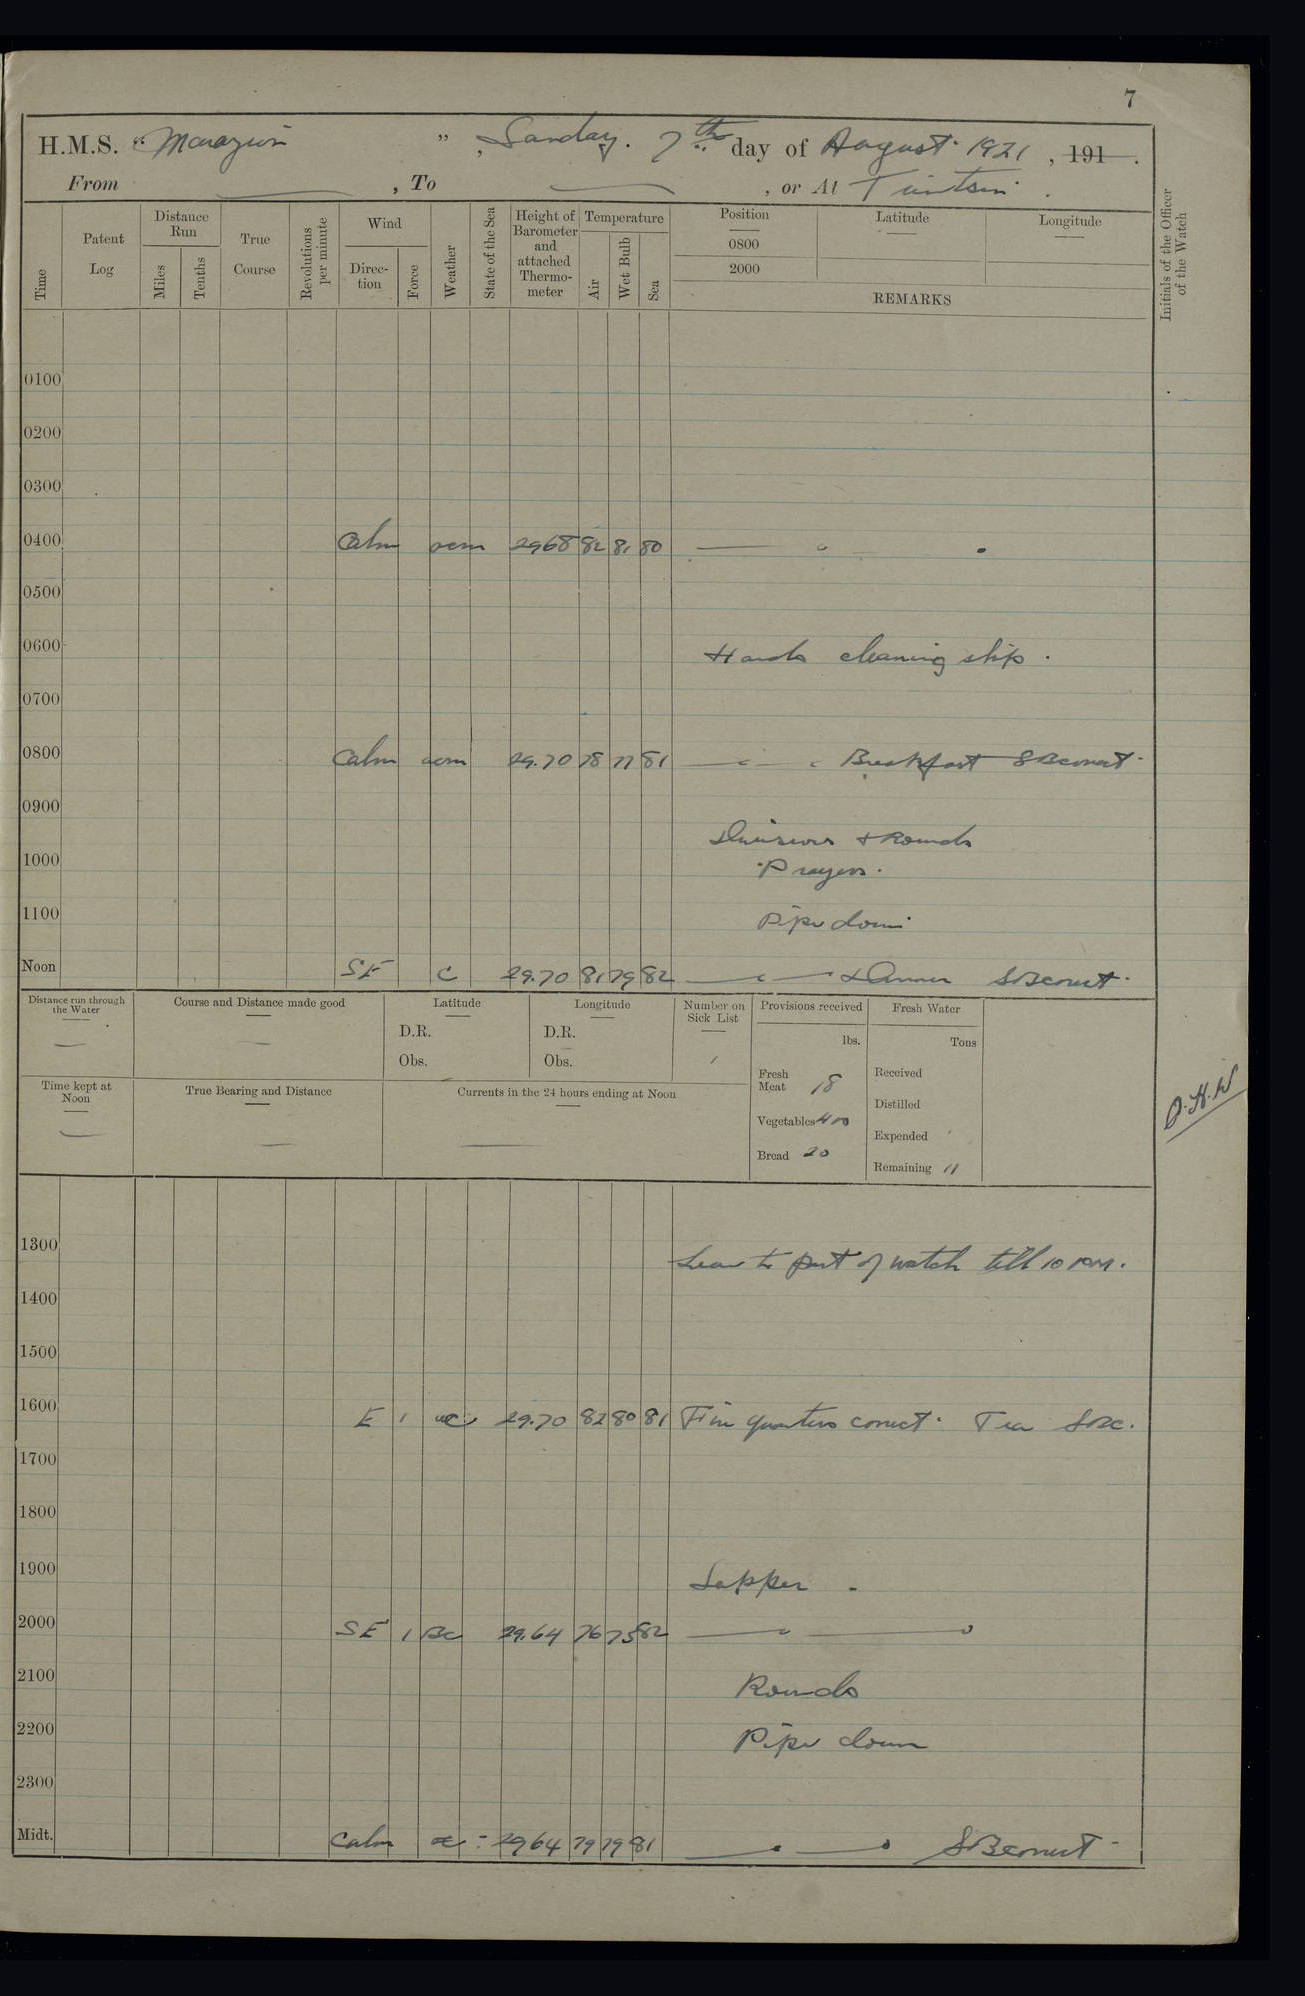 7
H.M.S. "Marazion", Sunday. 7th day of August 1921, 191 .
From , To , or At Tientsin .
Time Patent Log Distance Run Miles Tenths True Course Revolutions per minute Wind Direction Force Weather State of the Sea Height of Barometer and attached Thermometer Temperature Air Wet Bulb Sea Position Latitude Longitude
0800
2000
REMARKS
Initials of the Officer of the Watch
0100
0200
0300
0400 Calm ocm 2968 82 81 80
0500
0600 Hands cleaning ship.
0700
0800 Calm ocm 29.70 78 77 81 Breakfast SBcorrect.
0900
Divisions & Rounds
1000 Prayers.
1100 Pipe down
Noon SE C 29.70 81 79 82 Dinner SBcorrect.
Distance run through the Water Course and Distance made good Latitude Longitude Number on Sick List Provisions received Fresh Water
lbs. Tons
D.R. D.R.
Obs. Obs. 1
Fresh Meat 18 Received
Time kept at Noon True Bearing and Distance Currents in the 24 hours ending at Noon
Distilled
Vegetables 400
Expended
Bread 20
Remaining 11
O.H.W
1300 Leave to part of watch till 10 PM.
1400
1500
1600 E 1 29.70 82 80 81 Fire quarters correct. Tea SBC.
1700
1800
1900 Supper
2000 SE 1 Bc 29.64 76 75 82
2100 Rounds
2200 Pipe down
2300
Midt. Calm 2964 79 79 81 SBcorrect